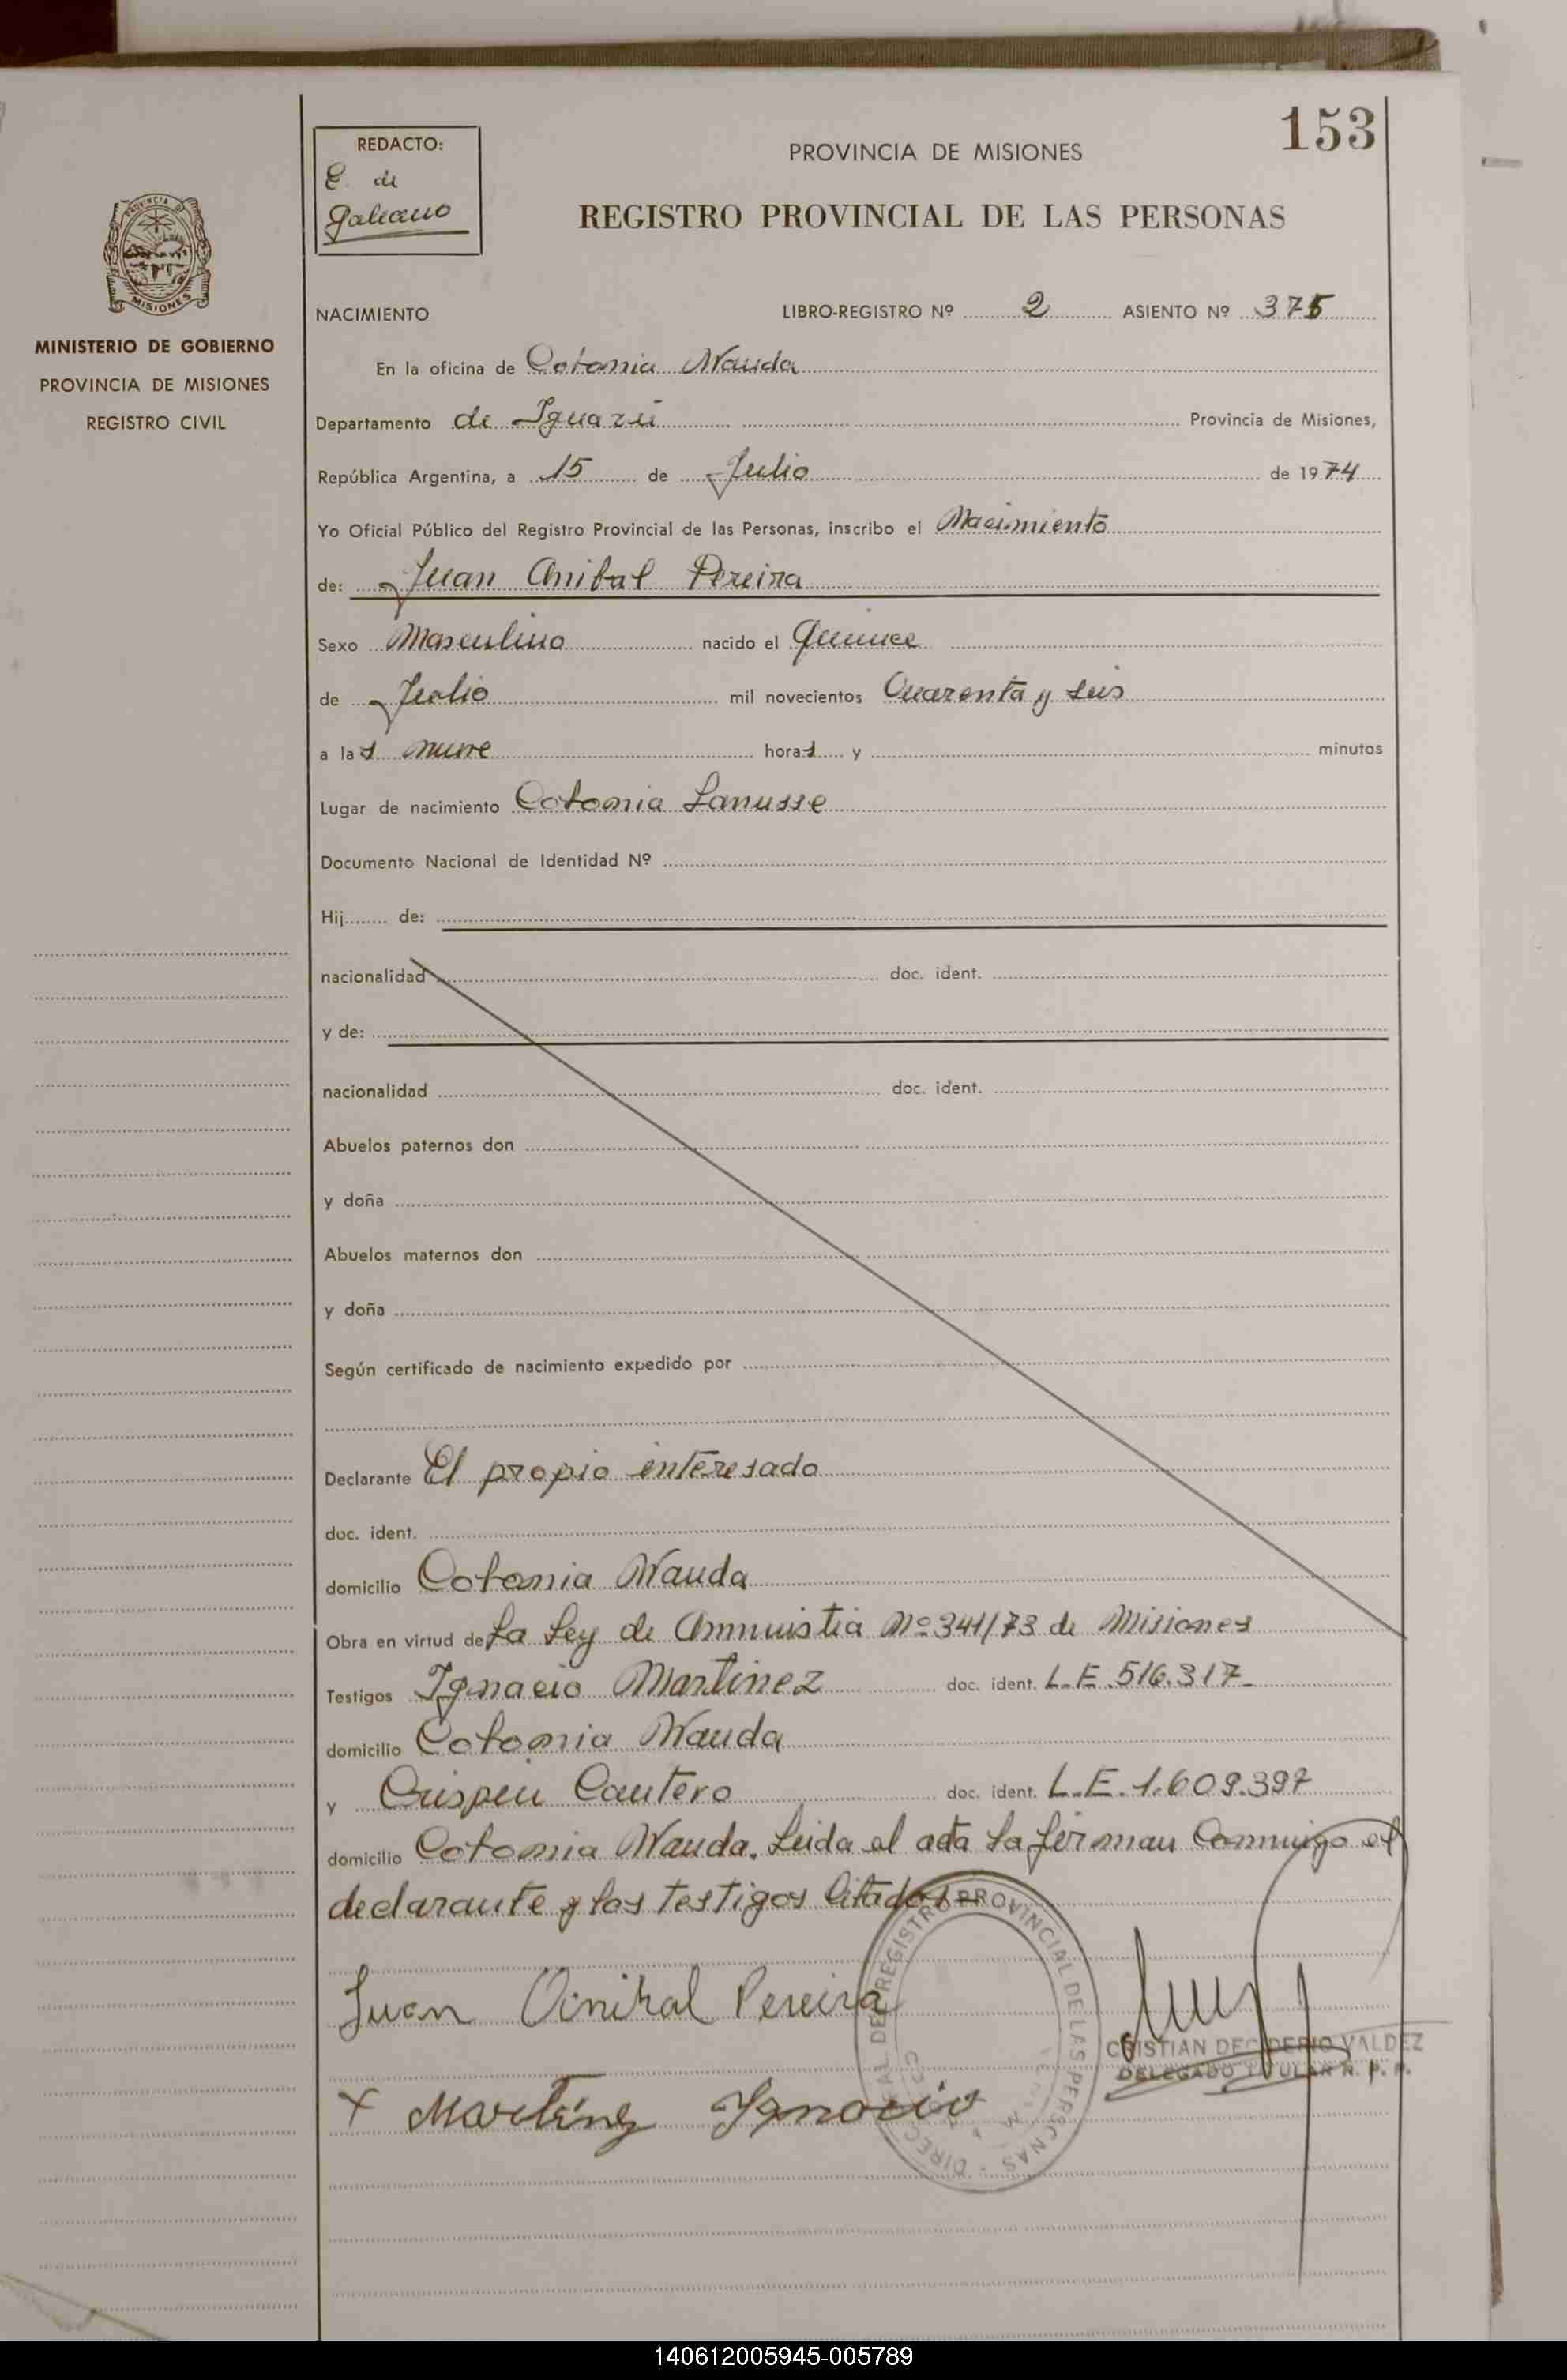 153
REDACTO:
E. de
Galeano
PROVINCIA DE MISIONES
REGISTRO PROVINCIAL DE LAS PERSONAS
PROVINCIA DE
MISIONES
MINISTERIO DE GOBIERNO
PROVINCIA DE MISIONES
REGISTRO CIVIL
NACIMIENTO LIBRO-REGISTRO Nº 2 ASIENTO Nº 375
En la oficina de Colonia Wanda
Departamento de Iguazú Provincia de Misiones,
República Argentina, a 15 de Julio de 1974
Yo Oficial Público del Registro Provincial de las Personas, inscribo el Nacimiento
de: Juan Anibal Pereira
Sexo Masculino nacido el Quince
de Julio mil novecientos Cuarenta y seis
a las nueve horas y minutos
Lugar de nacimiento Colonia Lanusse
Documento Nacional de Identidad Nº
Hij de:
nacionalidad doc. ident.
y de:
nacionalidad doc. ident.
Abuelos paternos don
y doña
Abuelos maternos don
y doña
Según certificado de nacimiento expedido por
Declarante El propio interesado
doc. ident.
domicilio Colonia Wanda
Obra en virtud de La Ley de Amnistia Nº 341/73 de Misiones
Testigos Ignacio Martinez doc. ident. L.E. 516.317
domicilio Colonia Wanda
y Crispin Cantero doc. ident. L.E. 1.609.397
domicilio Colonia Wanda. Leida el acta la firman Conmigo el
declarante y los testigos Citados
Juan Anibal Pereira
CRISTIAN DECIDERIO VALDEZ
DELEGADO TITULAR R. P. P.
x Martínez Ignacio
REGISTRO PROVINCIAL DE LAS PERSONAS
140612005945-005789